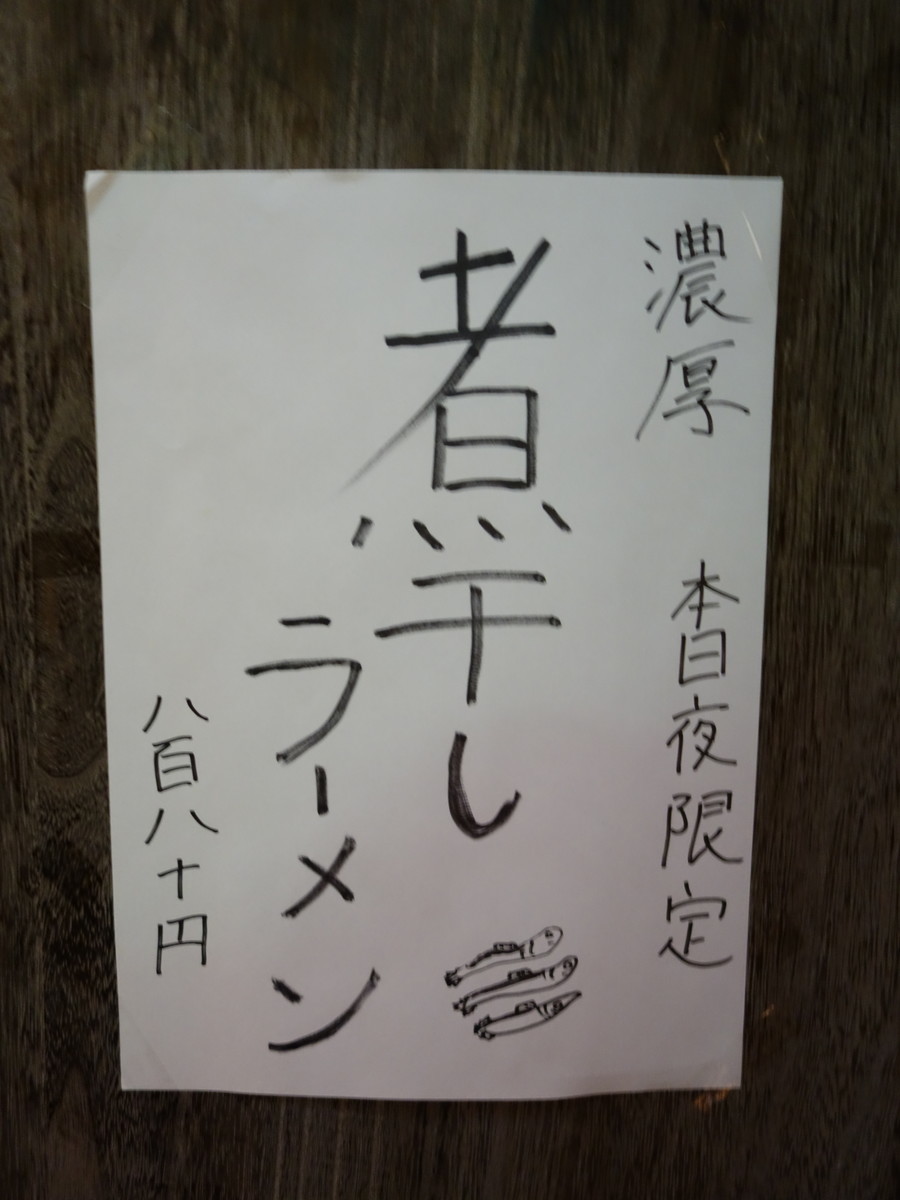 濃厚 本日夜限定
煮干し
ラーメン
八百八十円